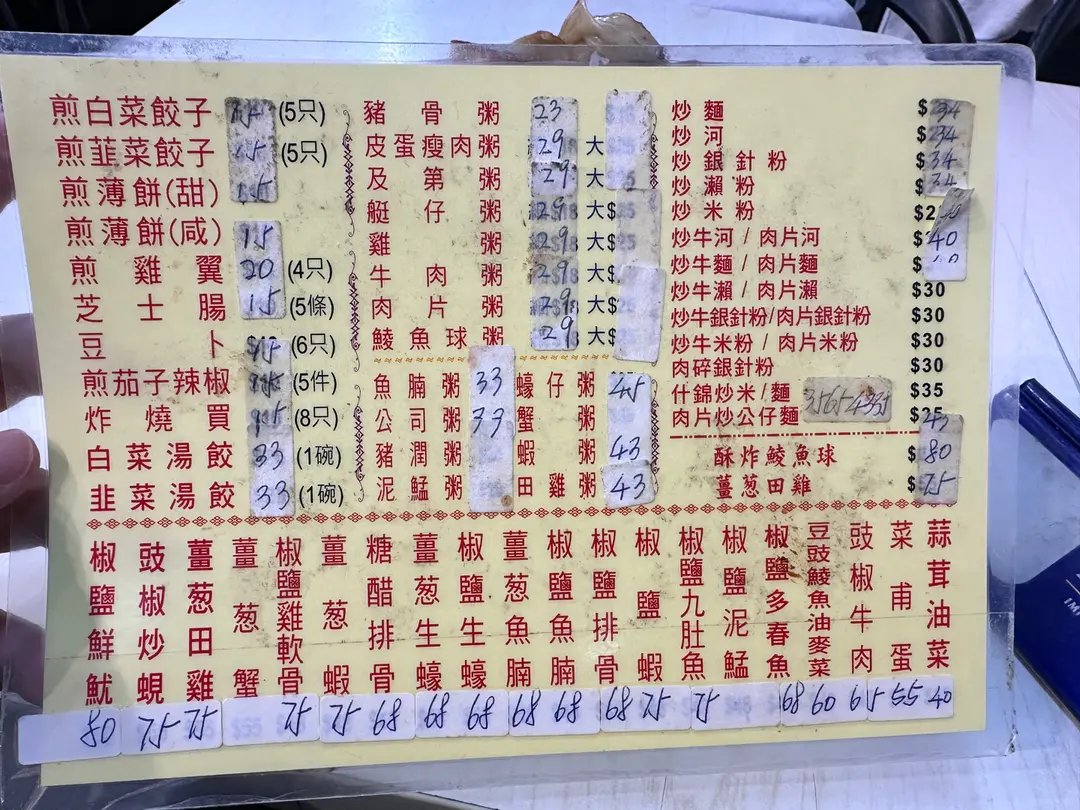 煎白菜餃子 15 (5只)
煎韮菜餃子 15 (5只)
煎薄餅(甜) 15
煎薄餅(咸) 15
煎雞翼 20 (4只)
芝士腸 15 (5條)
豆卜 $15 (6只)
煎茄子辣椒 (5件)
炸燒買 15 (8只)
白菜湯餃 33 (1碗)
韮菜湯餃 33 (1碗)
豬骨粥 23
皮蛋瘦肉粥 29 大
及第粥 29 大
艇仔粥 29 大$
雞粥 29 大$
牛肉粥 29 大$
肉片粥 29 大$
鯪魚球粥 29 大$
魚腩粥 33 蠔仔粥 45
公司粥 33 蟹粥
豬潤粥 蝦粥 43
泥鯭粥 田雞粥 43
炒麵 $34
炒河 $34
炒銀針粉 $34
炒瀨粉 $34
炒米粉
炒牛河/肉片河 $40
炒牛麵/肉片麵 $
炒牛瀨/肉片瀨 $30
炒牛銀針粉/肉片銀針粉 $30
炒牛米粉/肉片米粉 $30
肉碎銀針粉 $30
什錦炒米/麵 $35
肉片炒公仔麵 $25
酥炸鯪魚球 $80
薑葱田雞 $75
椒鹽鮮魷 80
豉椒炒蜆 75
薑葱田雞 75
薑葱蟹
椒鹽雞軟骨 75
薑葱蝦 75
糖醋排骨 68
薑葱生蠔 68
椒鹽生蠔 68
薑葱魚腩 68
椒鹽魚腩 68
椒鹽排骨 68
椒鹽蝦 75
椒鹽九肚魚 75
椒鹽泥鯭
椒鹽多春魚 68
豆豉鯪魚油麥菜 60
豉椒牛肉 65
菜甫蛋 55
蒜茸油菜 40